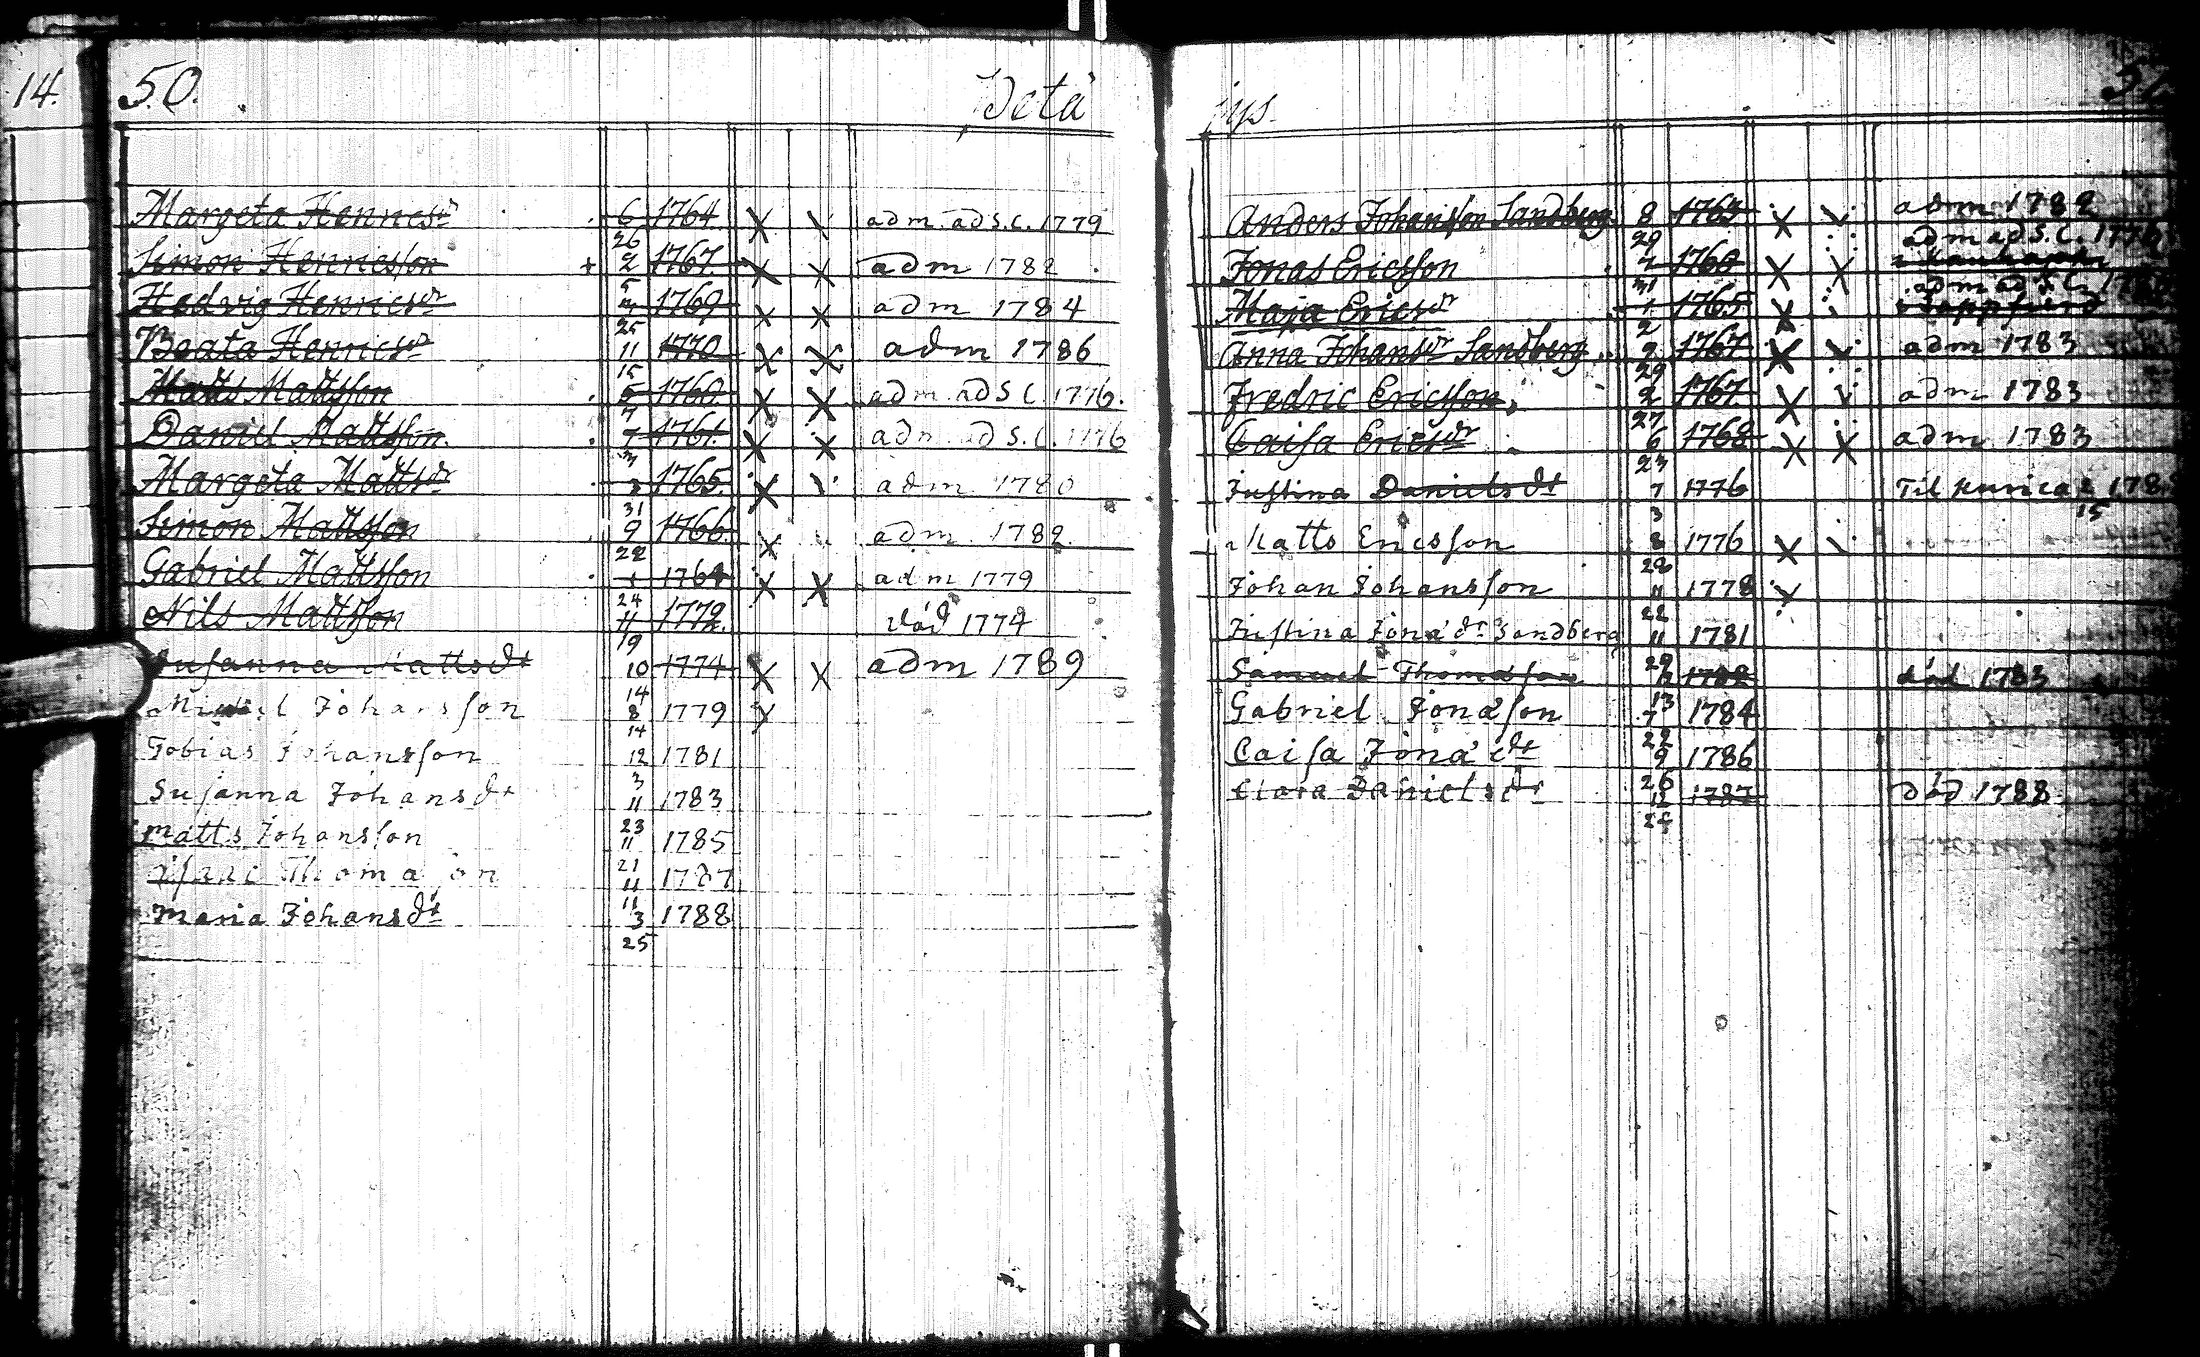 14. 50. Wetä
Margeta Hennesdr 6 1764 X adm. ad S.C. 1779
26
Simon Henricsson + 2 1767 X X adm 1782
5
Hedvig Henricsdr 4 1769 X X adm 1784
25
Beata Henricsdr 11 1770 X X adm 1786
15
Matts Mattsson 5 1760 X X adm. ad S.C. 1776.
7
Daniel Mattsson 7 1761 X X adm. ad S.C. 1776
3
Margeta Mattsdr 1765 X adm. 1780
31
Simon Mattsson 9 1766 X adm. 1782
22
Gabriel Mattsson 1 1764 X X adm 1779
24
Nils Mattsson 11 1772. död 1774
19
Susanna Mattsdt 10 1774 X X adm 1789
14
Johansson 8 1779
14
Tobias Johansson 12 1781
3
Susanna Johansdt 11 1783
23
Matts Johansson 11 1785
21
Isaac Thomason 11 1787
11
Maria Johansdt 3 1788
25
jys.
Anders Johansson Sandberg 8 1763 X adm 1782
29 adm ad S.C. 1776
Jonas Ericsson 7 1760 X X
31 adm ad S.C. 17
Maja Ericsdr 1 1765 X
2
Anna Johansdr Sandberg 9 1767 X adm 1783
29
Fredric Ericsson, 2 1767 X adm 1783
27
Caisa Ericsdr 6 1768 X X adm 1783
23
Justina Danielsdt 7 1776 Til 178
3 15
Matts Ericsson 8 1776 X
28
Johan Johansson 11 1778 X
22
Justina Jonädr Sandberg 11 1781
29
Samuel Thomasson 1782 död 1783
13
Gabriel Jonäson 7 1784
22
Caisa Jonädt 9 1786
26
Clara Danielsdr 12 1787 död 1788
25